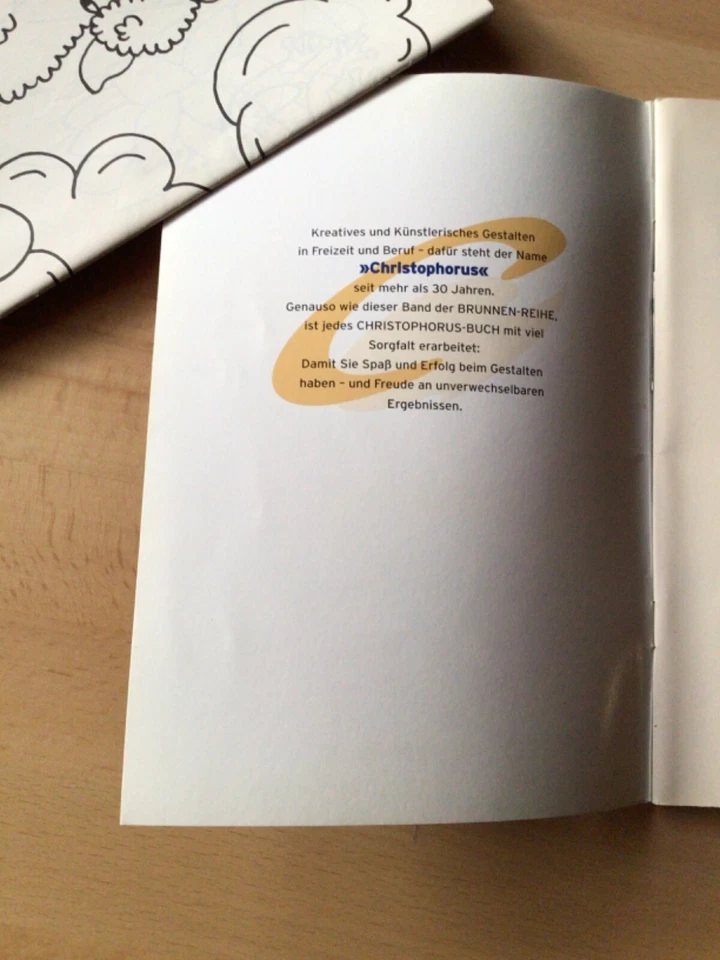 Kreatives und Künstlerisches Gestalten
in Freizeit und Beruf – dafür steht der Name
»Christophorus«
seit mehr als 30 Jahren.
Genauso wie dieser Band der BRUNNEN-REIHE,
ist jedes CHRISTOPHORUS-BUCH mit viel
Sorgfalt erarbeitet:
Damit Sie Spaß und Erfolg beim Gestalten
haben – und Freude an unverwechselbaren
Ergebnissen.